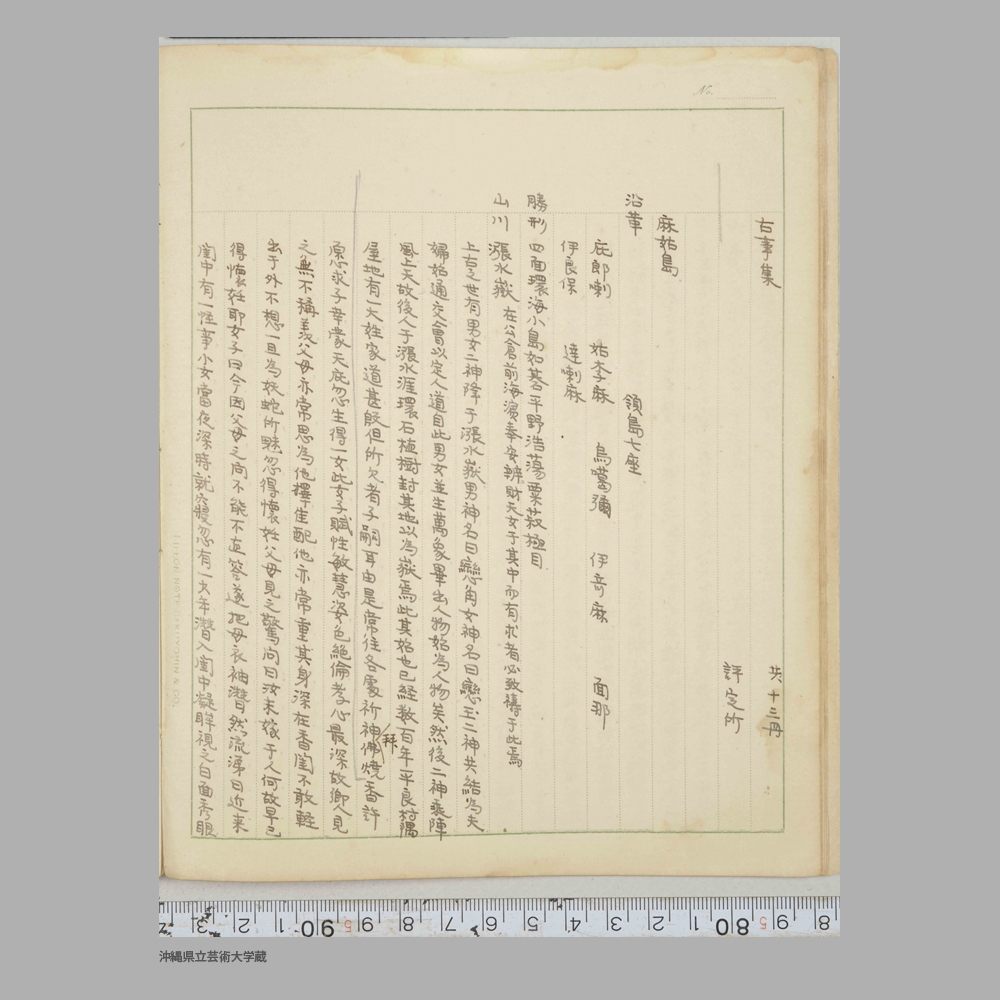 No.
古事集
共十三冊
評定所
麻姑島
沿革 領島七座
庇郎喇 姑李麻 烏噶彌 伊奇麻 面那
伊良保 達喇麻
勝形 四面環海小島如碁平野浩蕩粟菽極目
山川 漲水嶽 在公倉前海濱奉安辨財天女于其中而有求者必致禱于此焉
上古之世有男女二神降于漲水嶽男神名曰戀角女神名曰戀玉二神共結為夫
婦始通交會以定人道自此男女並生萬象畢出人物始為人物矣然後二神乘陣
風上天故後人于漲水涯環石植樹封其地以為嶽焉此其始也已経数百年平良村隅
屋地有一大姓家道甚殷但所欠者子嗣耳由是常往各處祈神拜佛燒香許
願求子幸蒙天庇忽生得一女此女子賦性敏慧姿色絕倫孝心最深故鄉人見
之無不稱羨父母亦常思為他擇佳配他亦常重其身深在香閨不敢輕
出于外不想一旦為妖蛇所魅忽得懷妊父母見之驚问曰汝未嫁于人何故早已
得懷妊耶女子曰今因父母之问不能不直答遂把母衣袖潸然流涕曰近来
閨中有一怪事小女當夜深時就寢忽有一少年潛入閨中凝眸視之白面秀眼
8 9 5 80 1 2 3 4 5 6 7 8 9 5 90 1 2 3
沖縄県立芸術大学蔵